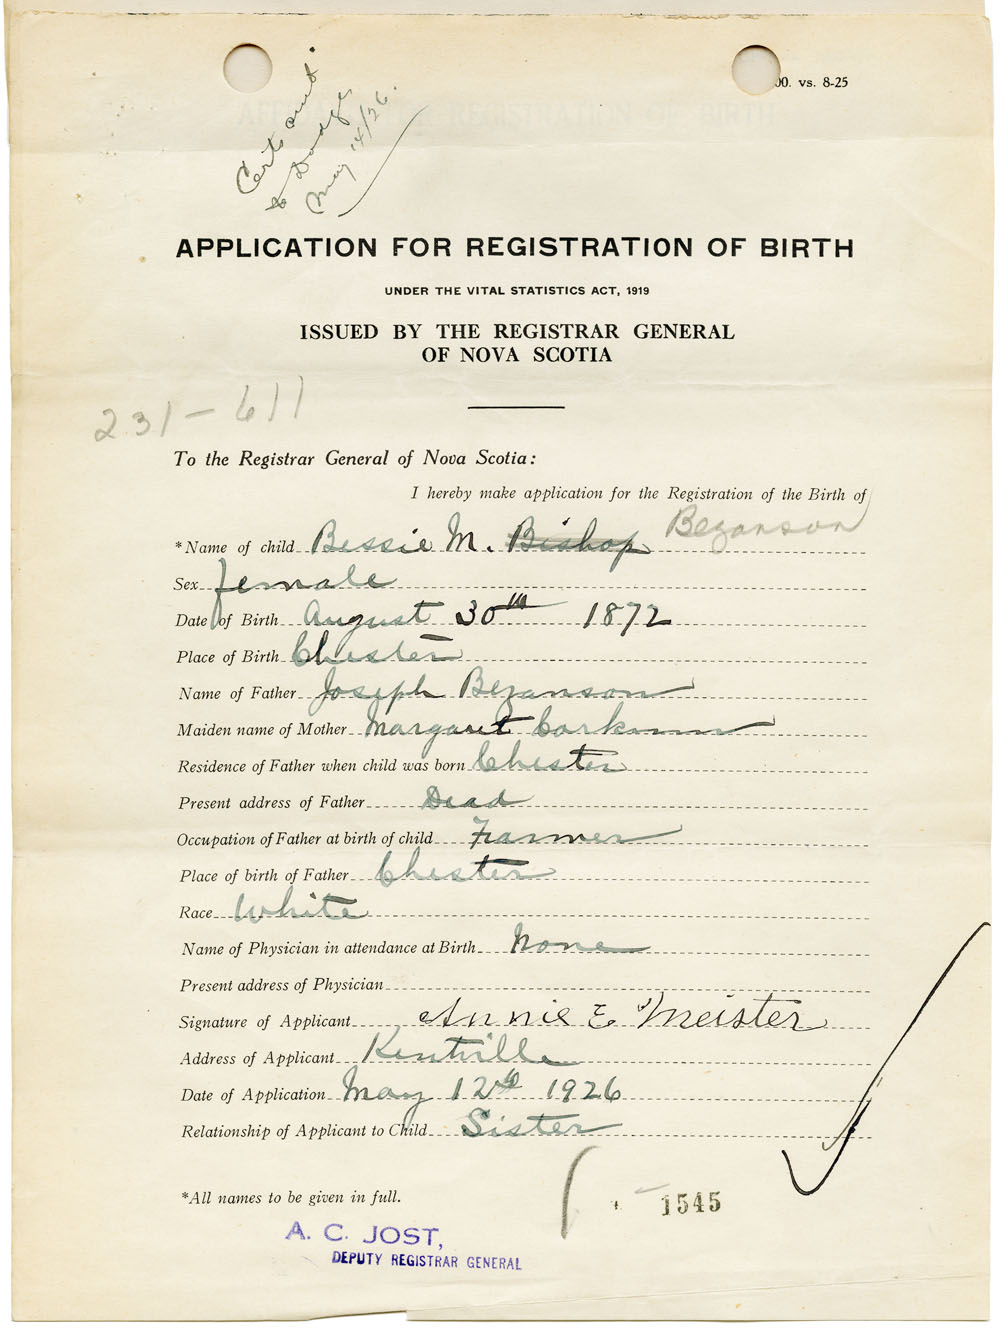 Certs out
to Dodge
May 14/26.
00. vs. 8-25
APPLICATION FOR REGISTRATION OF BIRTH
UNDER THE VITAL STATISTICS ACT, 1919
ISSUED BY THE REGISTRAR GENERAL
OF NOVA SCOTIA
231-611
To the Registrar General of Nova Scotia:
I hereby make application for the Registration of the Birth of
*Name of child Bessie M. Bishop Bezanson
Sex female
Date of Birth August 30th 1872
Place of Birth Chester
Name of Father Joseph Bezanson
Maiden name of Mother Margaret Corkum
Residence of Father when child was born Chester
Present address of Father Dead
Occupation of Father at birth of child Farmer
Place of birth of Father Chester
Race White
Name of Physician in attendance at Birth None
Present address of Physician
Signature of Applicant Annie E Meister
Address of Applicant Kentville
Date of Application May 12th 1926
Relationship of Applicant to Child Sister
*All names to be given in full.
1545
A. C. JOST,
DEPUTY REGISTRAR GENERAL